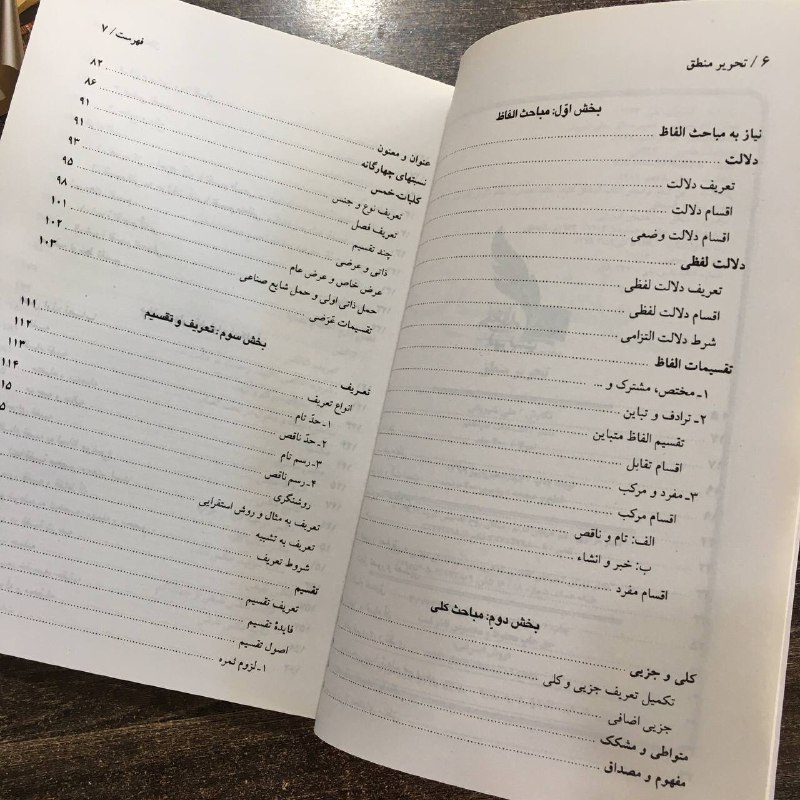 ۶ / تحریر منطق
بخش اوّل: مباحث الفاظ
نیاز به مباحث الفاظ
دلالت
تعریف دلالت
اقسام دلالت
اقسام دلالت وضعی
دلالت لفظی
تعریف دلالت لفظی
اقسام دلالت لفظی
شرط دلالت التزامی
تقسیمات الفاظ
۱ـ مختص، مشترک و ...
۲ـ ترادف و تباین
تقسیم الفاظ متباین
اقسام تقابل
۳ـ مفرد و مرکب
اقسام مرکب
الف: تام و ناقص
ب: خبر و انشاء
اقسام مفرد
بخش دوم: مباحث کلی
کلی و جزیی
تکمیل تعریف جزیی و کلی
جزیی اضافی
متواطی و مشکک
مفهوم و مصداق
فهرست / ۷
عنوان و معنون ۸۲
نسبتهای چهارگانه ۸۶
کلیات خمس ۹۱
تعریف نوع و جنس ۹۱
تعریف فصل ۹۳
چند تقسیم ۹۵
ذاتی و عرضی ۹۸
عرض خاص و عرض عام ۱۰۱
حمل ذاتی اولی و حمل شایع صناعی ۱۰۲
تقسیمات عَرَضی ۱۰۳
بخش سوم: تعریف و تقسیم
تعریف ۱۱۱
انواع تعریف ۱۱۲
۱ـ حدّ تام ۱۱۳
۲ـ حدّ ناقص ۱۱۴
۳ـ رسم تام
۴ـ رسم ناقص
روشنگری
تعریف به مثال و روش استقرایی
تعریف به تشبیه
شروط تعریف
تقسیم
تعریف تقسیم
فایدهٔ تقسیم
اصول تقسیم
۱ـ لزوم ثمره